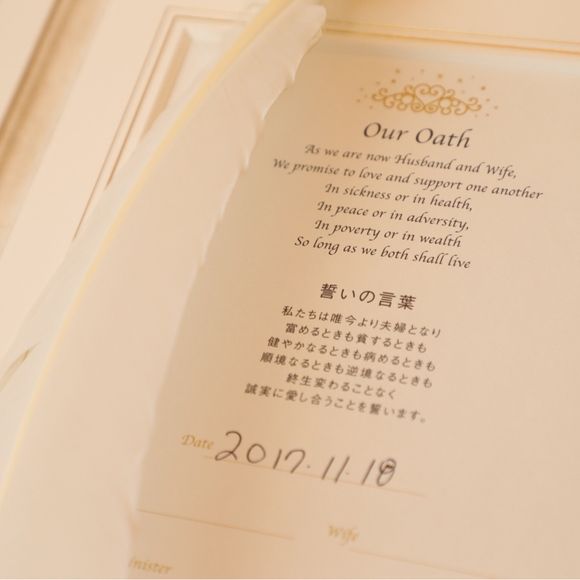 Our Oath
As we are now Husband and Wife,
We promise to love and support one another
In sickness or in health,
In peace or in adversity,
In poverty or in wealth
So long as we both shall live
誓いの言葉
私たちは唯今より夫婦となり
富めるときも貧するときも
健やかなるときも病めるときも
順境なるときも逆境なるときも
終生変わることなく
誠実に愛し合うことを誓います。
Date 2017.11.18
Wife
inister